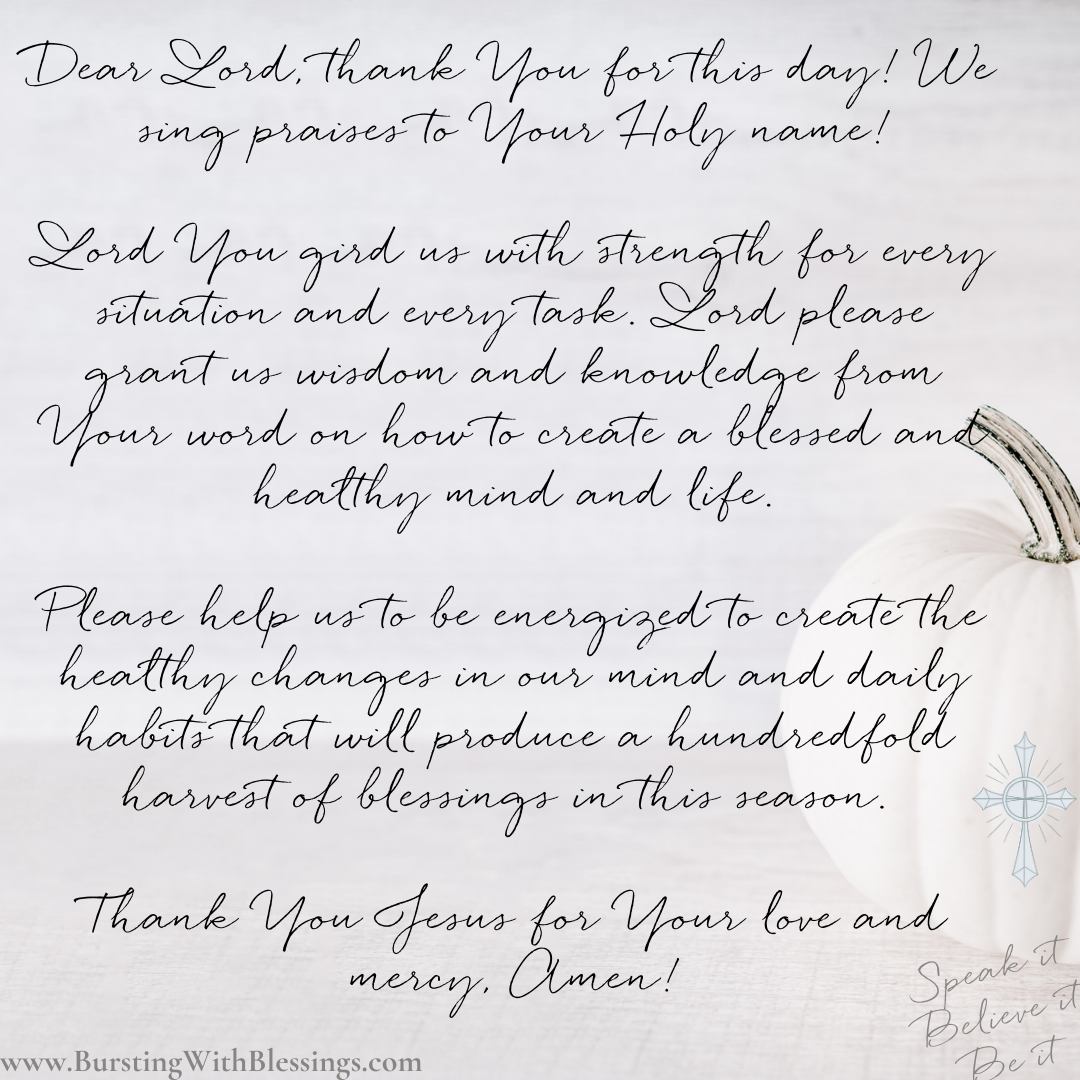 Dear Lord, thank You for this day! We
sing praises to Your Holy name!
Lord You gird us with strength for every
situation and every task. Lord please
grant us wisdom and knowledge from
Your word on how to create a blessed and
healthy mind and life.
Please help us to be energized to create the
healthy changes in our mind and daily
habits that will produce a hundredfold
harvest of blessings in this season.
Thank You Jesus for Your love and
mercy, Amen!
Speak it
Believe it
Be it
www.BurstingWithBlessings.com